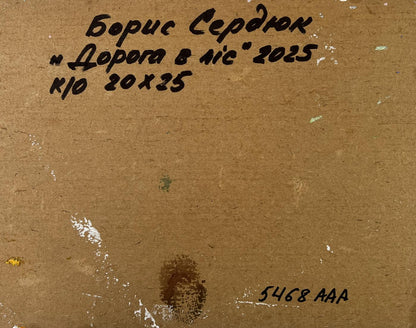 Борис Сердюк
"Дорога в ліс" 2025
к/о 20х25
5468 ААА